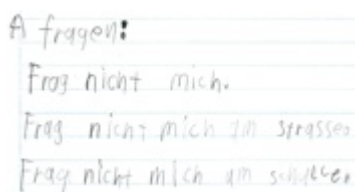 A fragen:
Frag nicht mich.
Frag nicht mich im strasse.
Frag nicht mich um